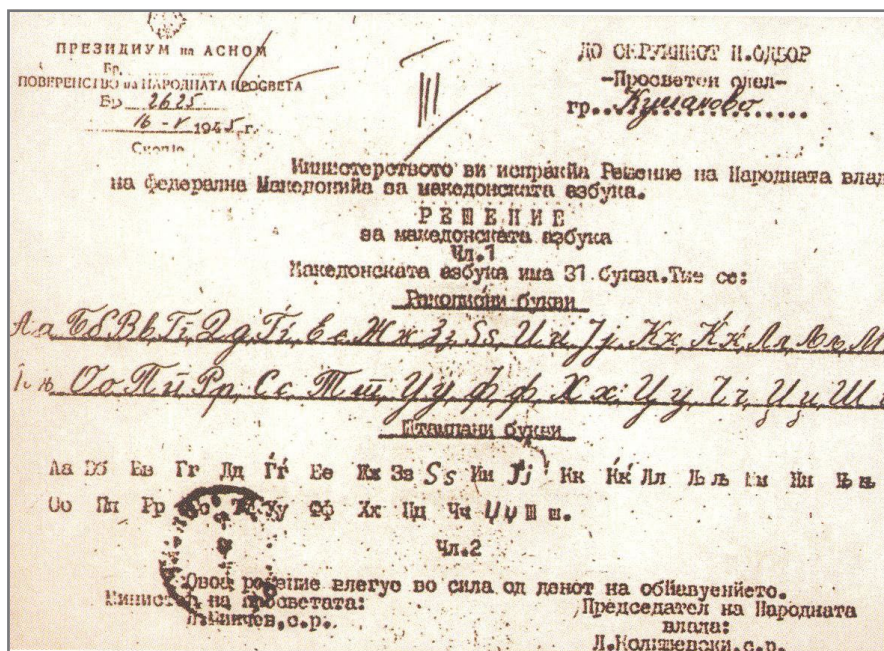 ПРЕЗИДИУМ на АСНОМ
Бр.
ПОВЕРЕНСТВО на НАРОДНАТА ПРОСВЕТА
Бр 2625
16 - V 1945 г.
Скопје
III
ДО ОКРУЖНИОТ Н.ОДБОР
-Просветен одел-
гр..Куманово
Министерството ви испраќја Решение на Народната влад
на федерална Македонија за македонската азбука.
РЕШЕНИЕ
за македонската азбука
Чл.1
Македонската азбука има 31 буква.Тие се:
Ракописни букви
Аа Бб Вв Гг Дд Ѓѓ Ее Жж Зз Ѕѕ Ии Јј Кк Ќќ Лл Љљ М
Њ њ Оо Пп Рр Сс Тт Уу Фф Хх Цц Чч Џџ Ш
Штампани букви
Аа Бб Вв Гг Дд Ѓѓ Ее Жж Зз Ѕѕ Ии Јј Кк Ќќ Лл Љљ Мм Нн Њњ
Оо Пп Рр Сс Тт Уу Фф Хх Цц Чч Џџ Шш.
Чл.2
Овоа решение влегуе во сила од денот на
Министер на просветата:
Председател на Народната
влада:
Л.Колишевски,с.р.